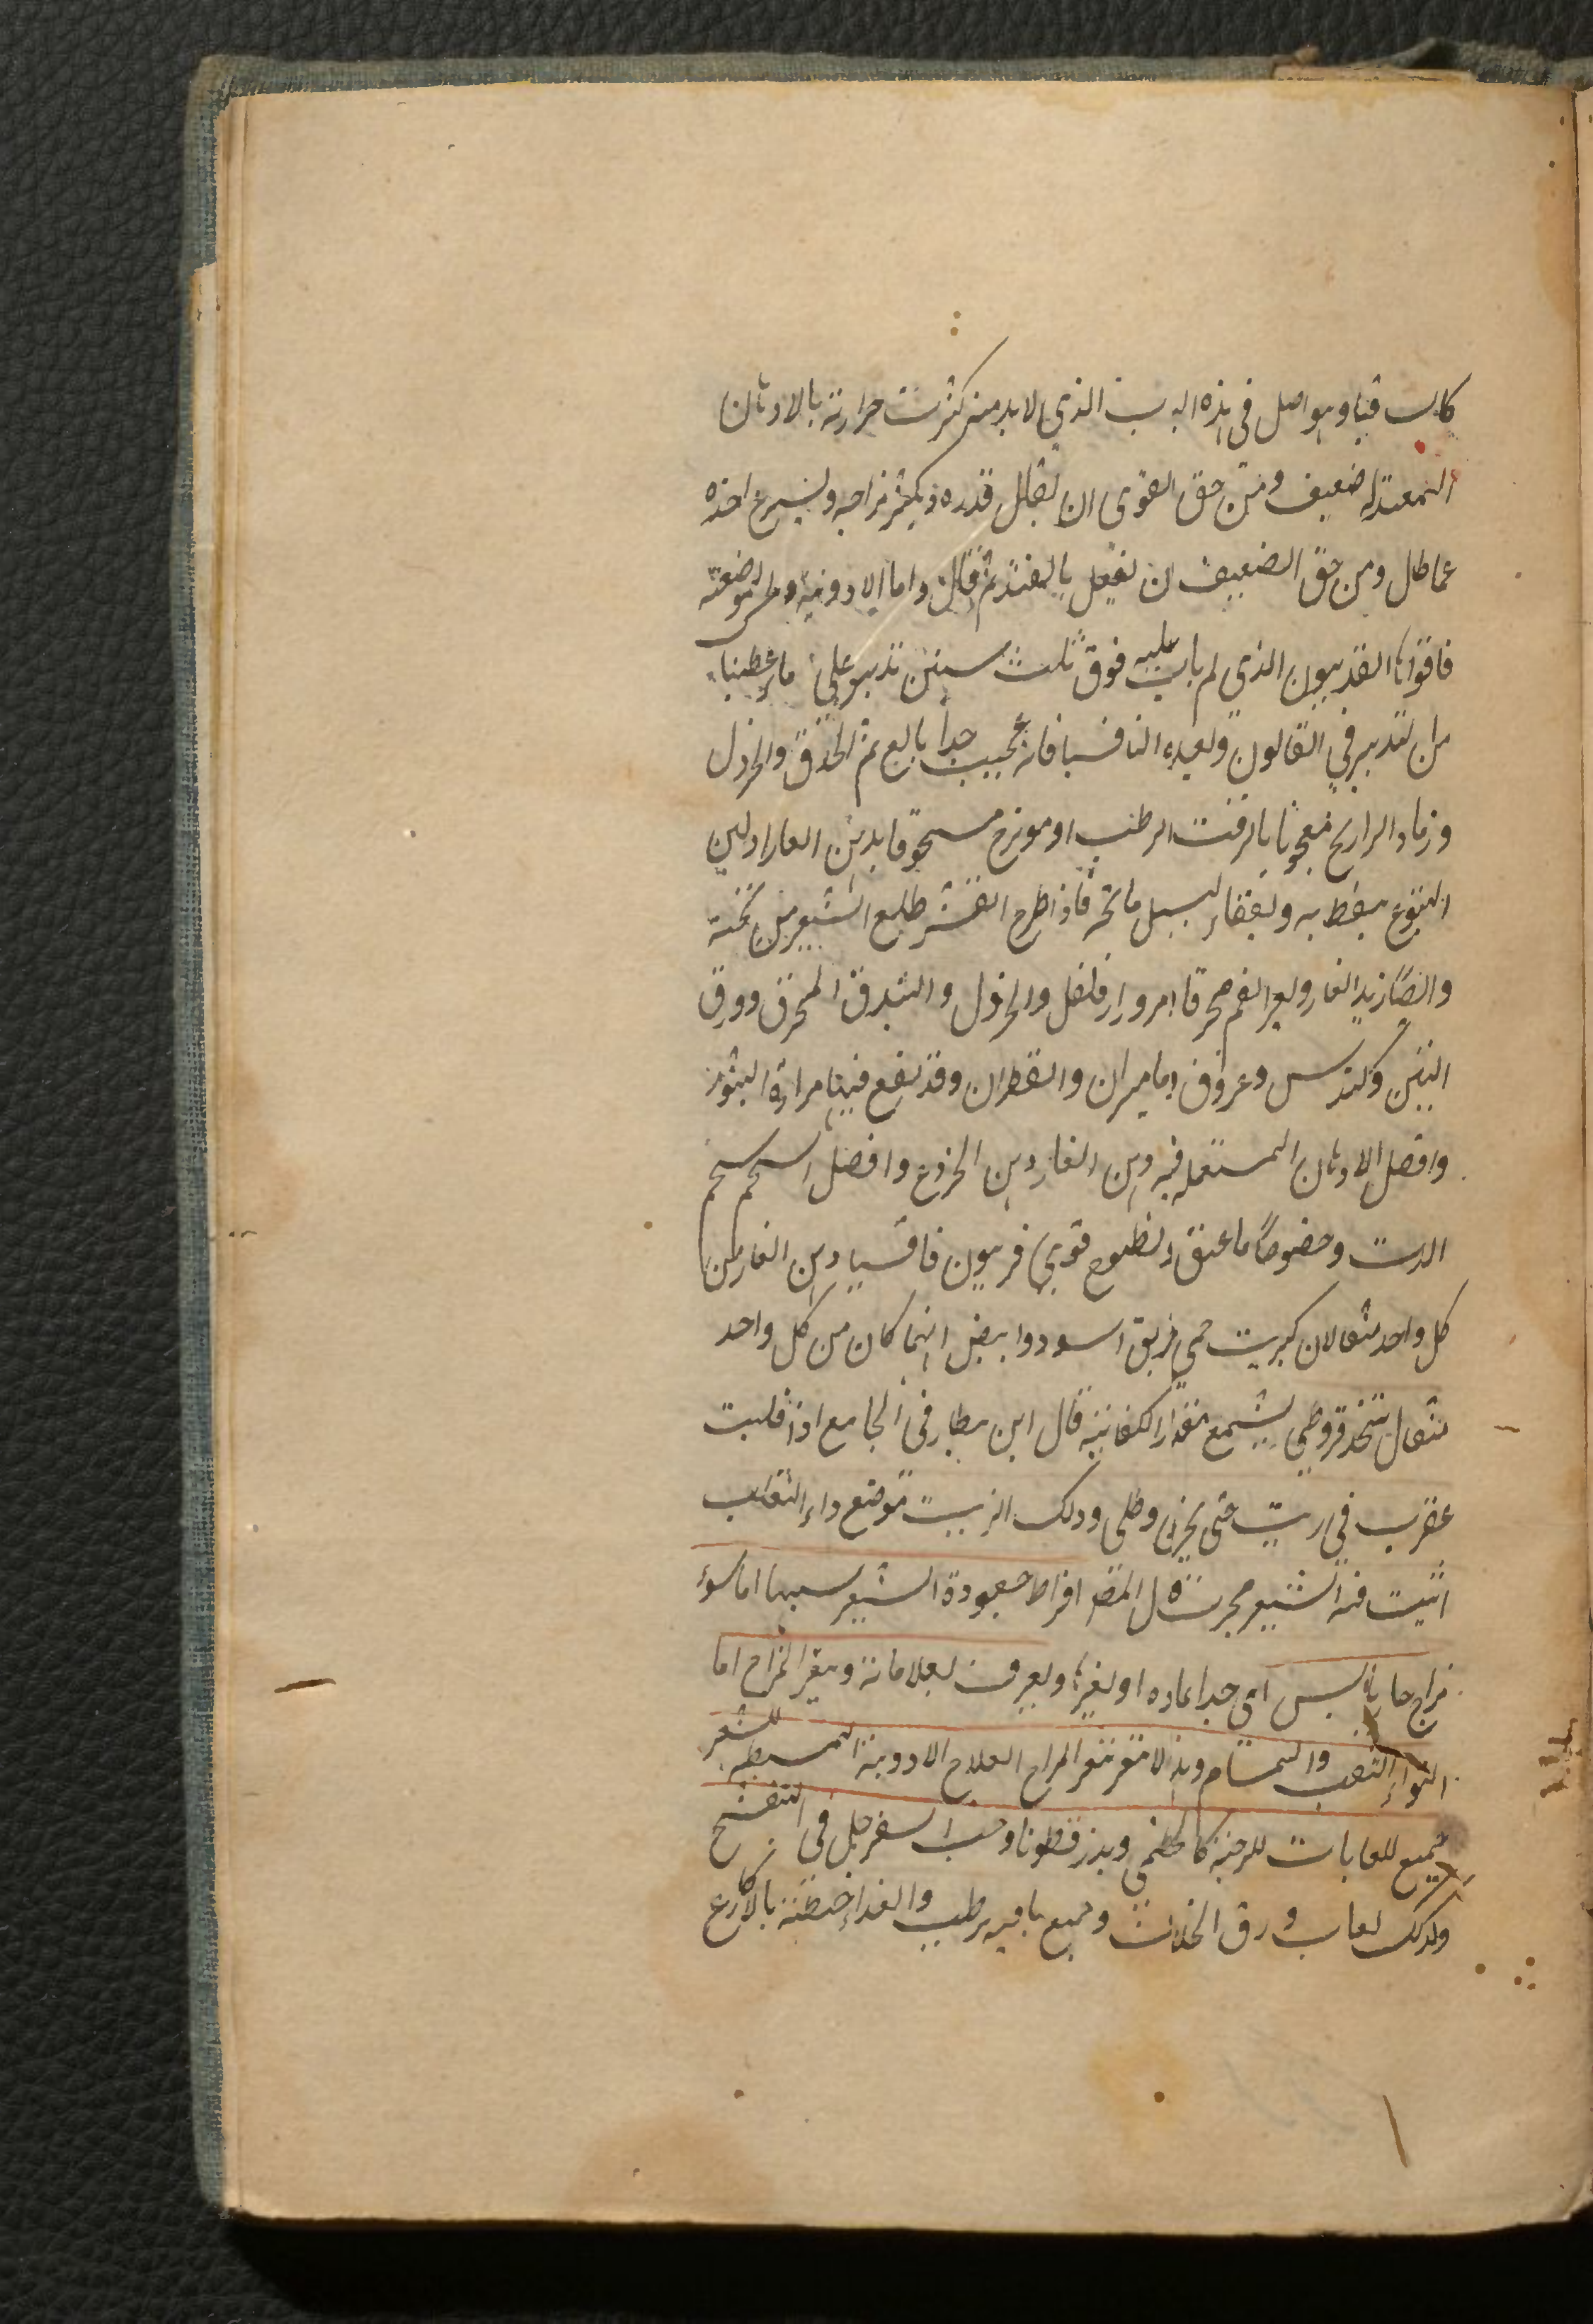 كانت قيا وهو اصل في هذه الباب الذي لابد منه كثرت حرارته بالادهان
المعتدله ضعيف ومن حق القوى ان يقلل قدره ويكثر مزاجه ويسرع اخذه
عما طال ومن حق الضعيف ان يفعل بالضد ثم قال واما الادوية
فاقواها الفربيون الذي لم يات عليه فوق ثلث سنين تدبير على ما اعطينا
من التدبير في القانون وبعده الثافسيا فانه عجيب جدا بالغ ثم الحرق والخردل
ورماد الراريح معجونا بالزفت الرطب او مويزج مسحوقا بدهن الغار او لبن
اليتوع ينقط به ويفقا ليسيل ماتحته فاذا طرح القشر طلع الشعر من تحته
وايضا زبد الغار وبعر الغنم محرقا فلفل والخردل والبندق المحرق وورق
التين وكندس وعروق ماميران والقطران وقد يقع فيها مرارة الثور
وافضل الادهان المستعمله فيه دهن الغار دهن الخروع وافضل الشحم شحم
الدب وخصوصا ما عتق ولطوخ قوي فربيون ثافسيا دهن الغار من
كل واحد مثقالان كبريت حي خربق اسود وابيض ايهما كان من كل واحد
مثقال يتخذ قروطي بشمع مقدار الكفاية قال ابن بيطار في الجامع اذا قليت
عقرب في زيت حتى يحرق وطلى وذلك الزيت موضع داء الثعلب
انبت فيه الشعر مجرب قال المص افراط جعودة الشعر سببها اما سوء
مزاج حار يابس اى جدا عاده او لغيرها ويعرف بعلاماته وبتغير المزاج اما
التواء الثقب والمسام وهذا لا يتغير بتغير المزاج العلاج الادوية المبسطه للشعر
جميع اللعابات اللزجة كالخطمى وبزر قطونا وحب السفرجل في
وكذلك لعاب ورق الخلاف وجميع ما فيه ترطيب والغذاء حنطة بالاكارع